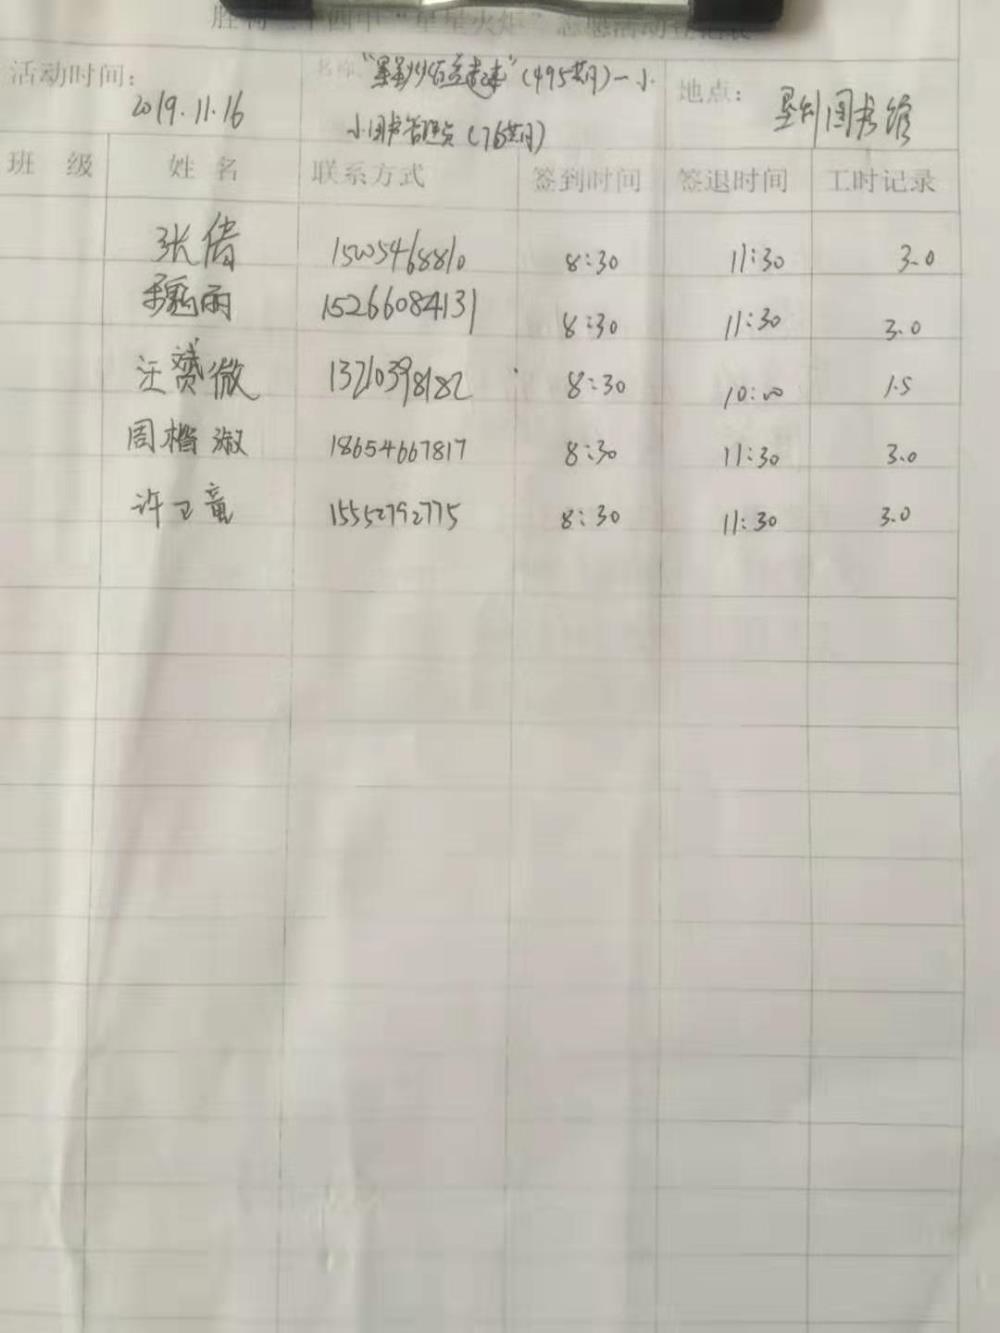 "星星火炬"志愿活动登记表
活动时间： 2019.11.16
名称："星火公益走起来"(495期)一小
小图书管理员(76期)
地点： 垦利图书馆
班 级 姓 名 联系方式 签到时间 签退时间 工时记录
张倩 1505468810 8:30 11:30 3.0
魏雨 15266084131 8:30 11:30 3.0
汪赟微 13210398182 8:30 10:00 1.5
周楷淑 18654667817 8:30 11:30 3.0
许卫童 15552792775 8:30 11:30 3.0